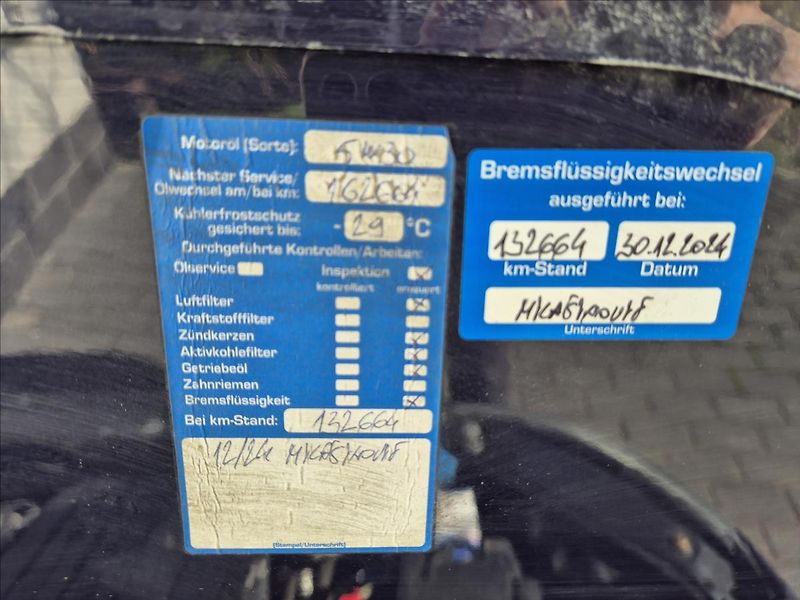 Motoröl (Sorte): 5W30
Nächster Service/
Ölwechsel am/bei km: 162664
Kühlerfrostschutz
gesichert bis: - 29 °C
Durchgeführte Kontrollen/Arbeiten:
Ölservice Inspektion X
kontrolliert erneuert
Luftfilter X
Kraftstofffilter
Zündkerzen X
Aktivkohlefilter X
Getriebeöl X
Zahnriemen
Bremsflüssigkeit X
Bei km-Stand: 132664
12/24
(Stempel/Unterschrift)
Bremsflüssigkeitswechsel
ausgeführt bei:
132664 30.12.2024
km-Stand Datum
Unterschrift